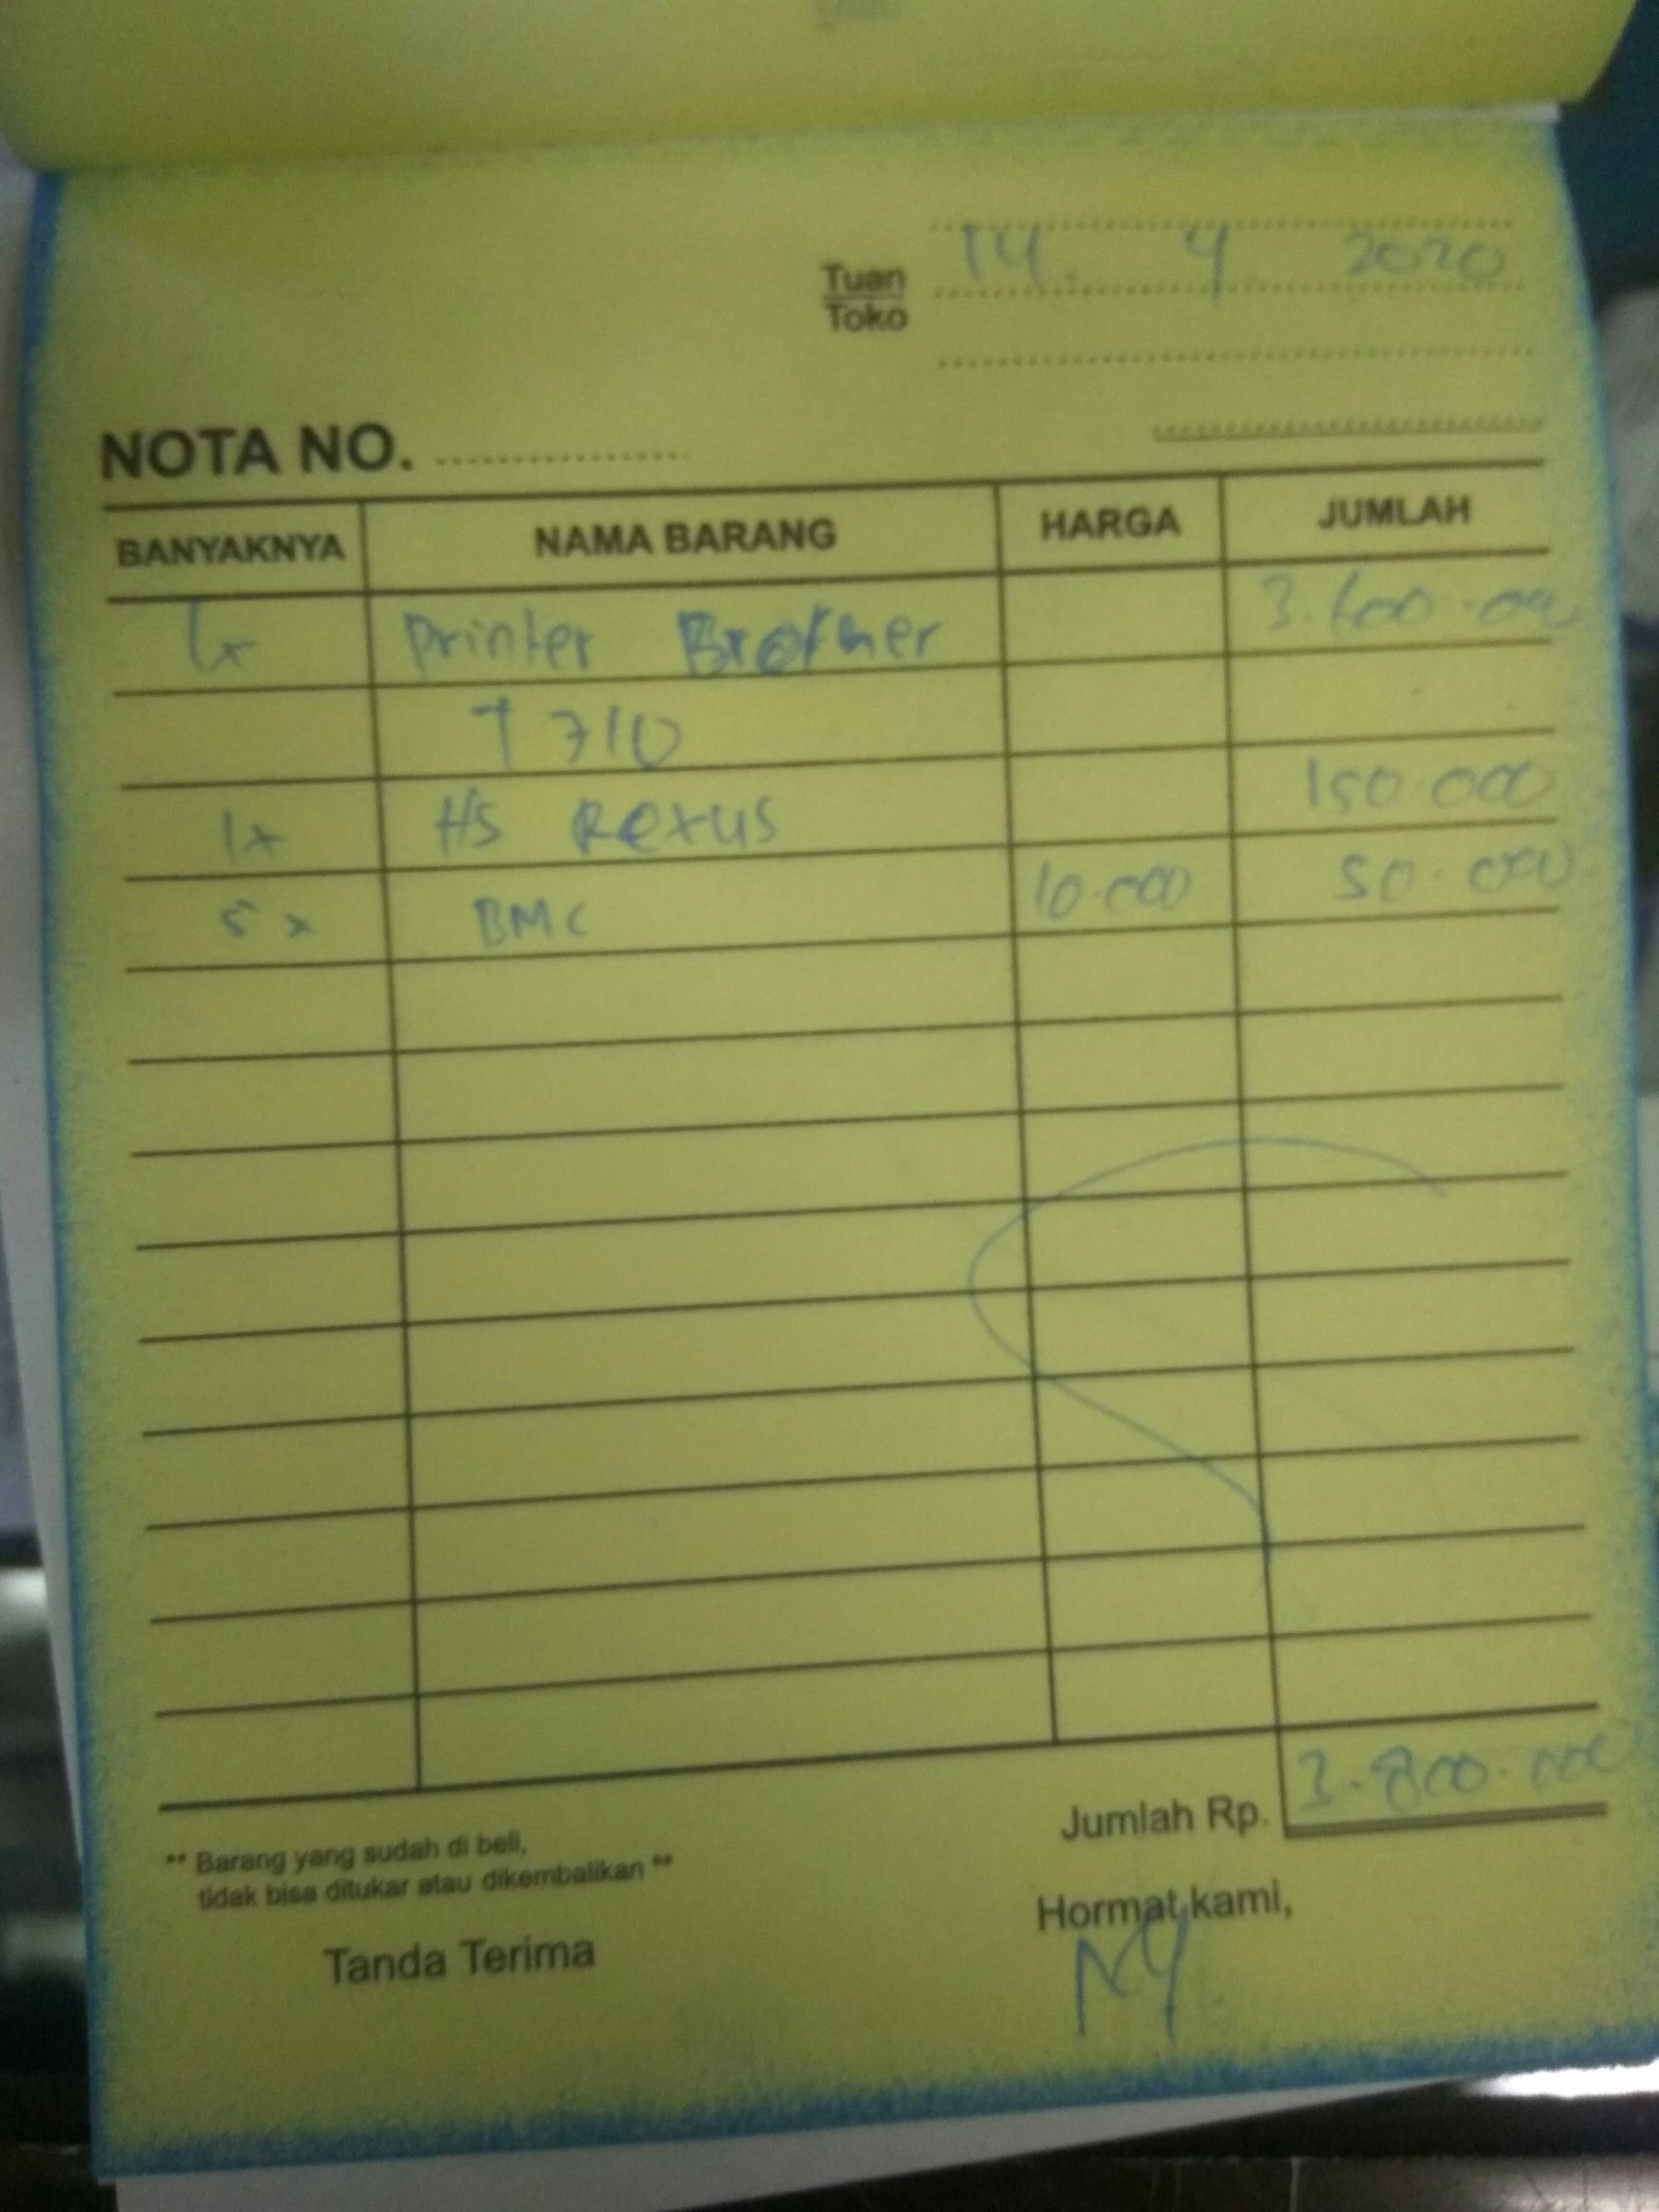 14. 4 2020
Tuan
Toko
NOTA NO. ................
BANYAKNYA NAMA BARANG HARGA JUMLAH
1x Printer Brother 3.600.000
T 710
1x HS Rexus 150.000
5x BMC 10.000 50.000
Jumlah Rp. 3.800.000
** Barang yang sudah di beli,
tidak bisa ditukar atau dikembalikan **
Hormat kami,
Tanda Terima